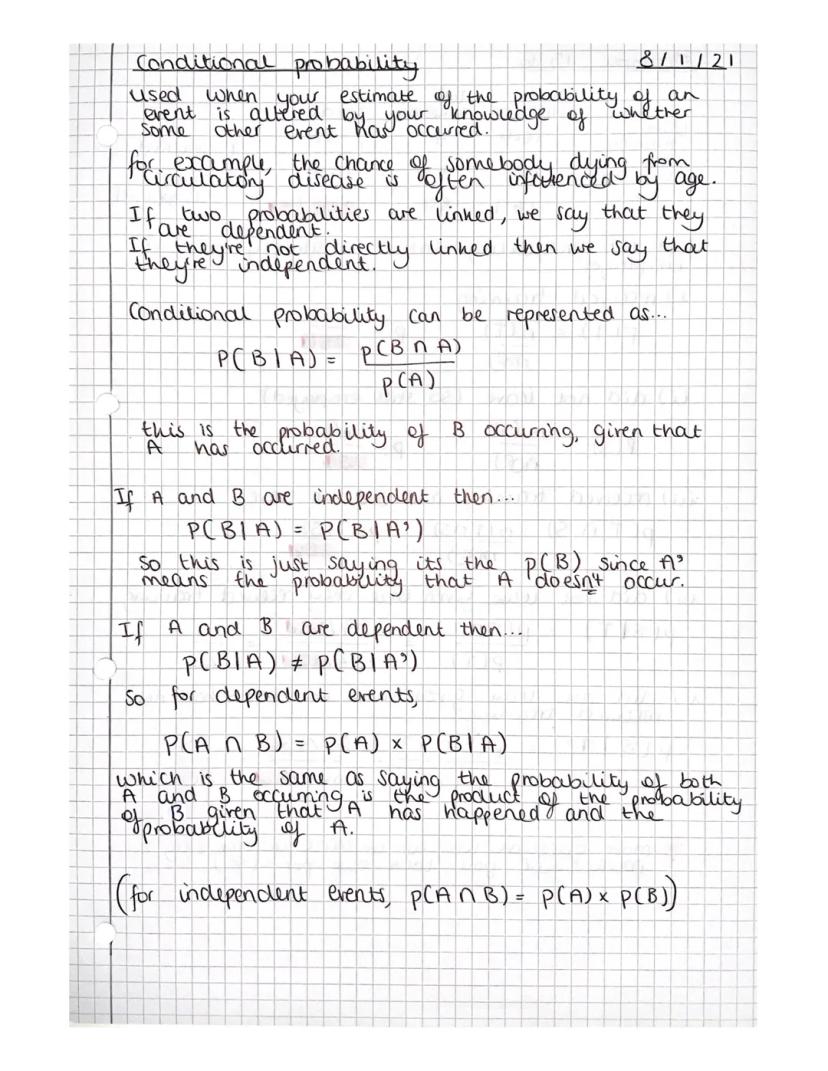 Conditional probability 8/1/21
used when your estimate of the probability of an
event is altered by your knowledge of whether
some other event has occurred.
for example, the chance of somebody dying from
circulatory disease is often influenced by age.
If two probabilities are linked, we say that they
are dependent.
If they're not directly linked then we say that
they're independent.
Conditional probability can be represented as...
P(B|A) = p(B ∩ A)
p(A)
this is the probability of B occurring, given that
A has occurred.
If A and B are independent then...
P(B|A) = P(B|A')
So this is just saying its the p(B) since A'
means the probability that A doesn't occur.
If A and B are dependent then...
p(B|A) ≠ p(B|A')
So for dependent events,
P(A ∩ B) = p(A) x P(B|A)
which is the same as saying the probability of both
A and B occurring is the product of the probability
of B given that A has happened and the
probability of A.
(for independent events, p(A ∩ B) = p(A) x p(B))